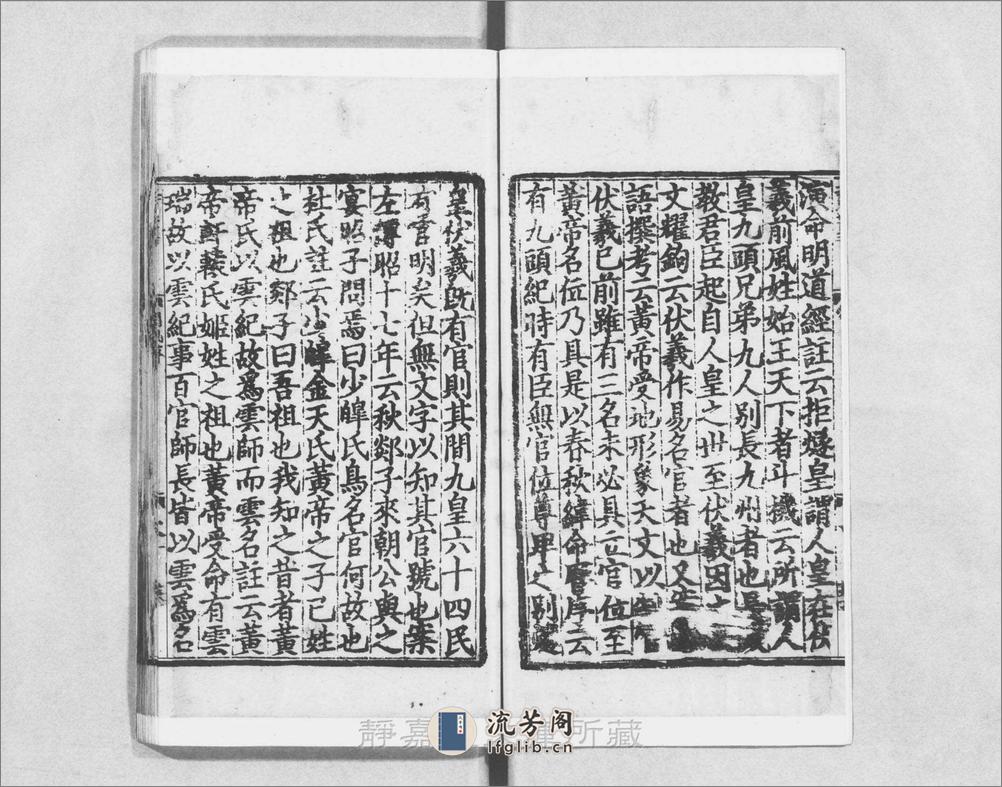 演命明道經註云拒燧皇謂人皇在伏
羲前風姓始王天下者斗機云所謂人
皇九頭兄弟九人別長九州者也是
教君臣起自人皇之世至伏羲因之
文耀鉤云伏羲作易名官者也又
語撰考云黃帝受地形象天文以
伏羲已前雖有三名未必具立官位至
黃帝名位乃具是以春秋緯命曆序云
有九頭紀時有臣無官位尊卑之別
皇伏羲旣有官則其間九皇六十四民
有官明矣但無文字以知其官號也案
左傳昭十七年云秋郯子來朝公與之
宴昭子問焉曰少皞氏鳥名官何故也
杜氏註云少皞金天氏黃帝之子己姓
之祖也郯子曰吾祖也我知之昔者黃
帝氏以雲紀故爲雲師而雲名註云黃
帝軒轅氏姬姓之祖也黃帝受命有雲
瑞故以雲紀事百官師長皆以雲爲名
靜嘉 所藏
流芳阁
lfglib.cn